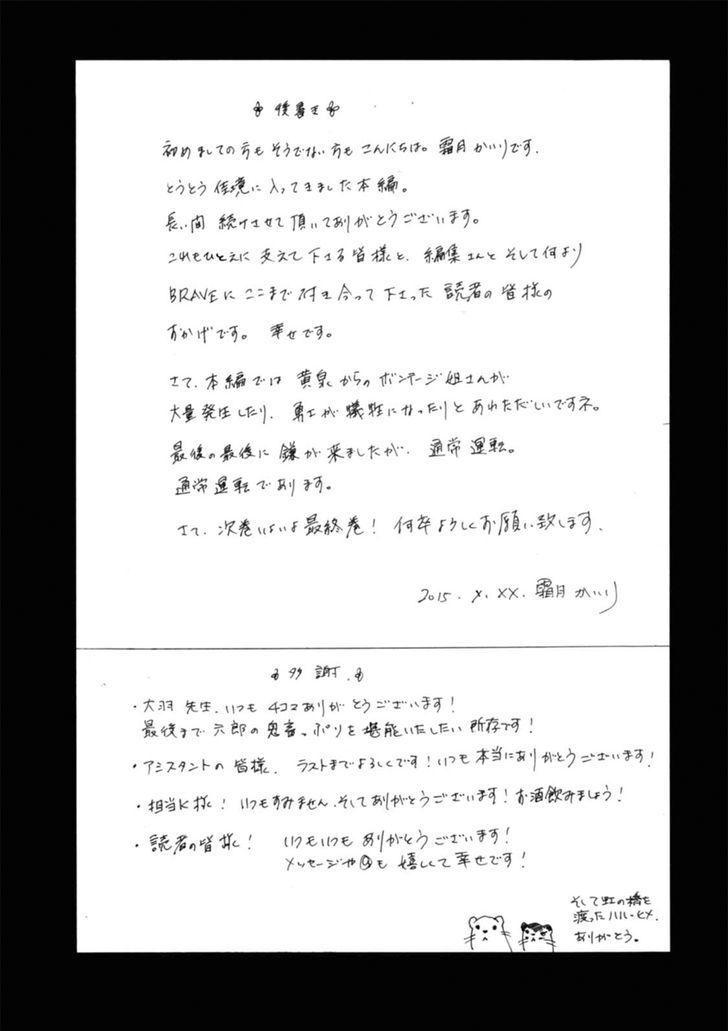 後書き
初めましての方もそうでない方もこんにちは。霜月かいりです.
とうとう佳境に入ってきました本編。
長い間 続けさせて頂いてありがとうございます。
これもひとえに 支えて下さる皆様と、編集さんと そして何より
BRAVEに ここまで 付き合って下さった 読者の皆様の
おかげです。 幸せです。
さて、本編では 黄泉からの ボンテージ姐さんが
大量発生したり、勇士が犠牲になったりと あわただしいですネ。
最後の最後に 鎌が来ましたが、 通常運転。
通常運転であります。
さて、次巻いよいよ最終巻! 何卒よろしくお願い致します.
2015. X. XX. 霜月かいり
多謝.
・大羽先生、いつも 4コマありがとうございます!
最後まで 六郎の鬼畜っぷりを 堪能いたしたい 所存です!
・アシスタントの皆様、 ラストまでよろしくです! いつも本当にありがとうございます!
・担当K様! いつもすみません、そしてありがとうございます! お酒飲みましょう!
・読者の皆様! いつもいつも ありがとうございます!
メッセージや@も 嬉しくて幸せです!
そして虹の橋を
渡った ハル・ヒメ.
ありがとう。